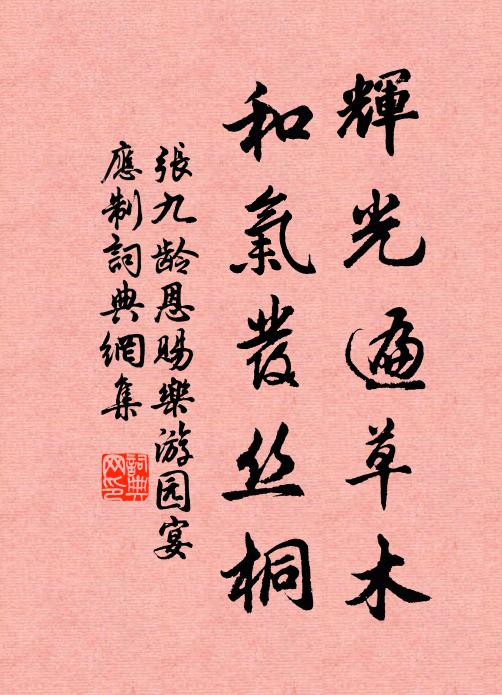 輝光遍草木
和氣發丝桐
張九龄恩賜樂游园宴
應制詞典網集
詞典网印